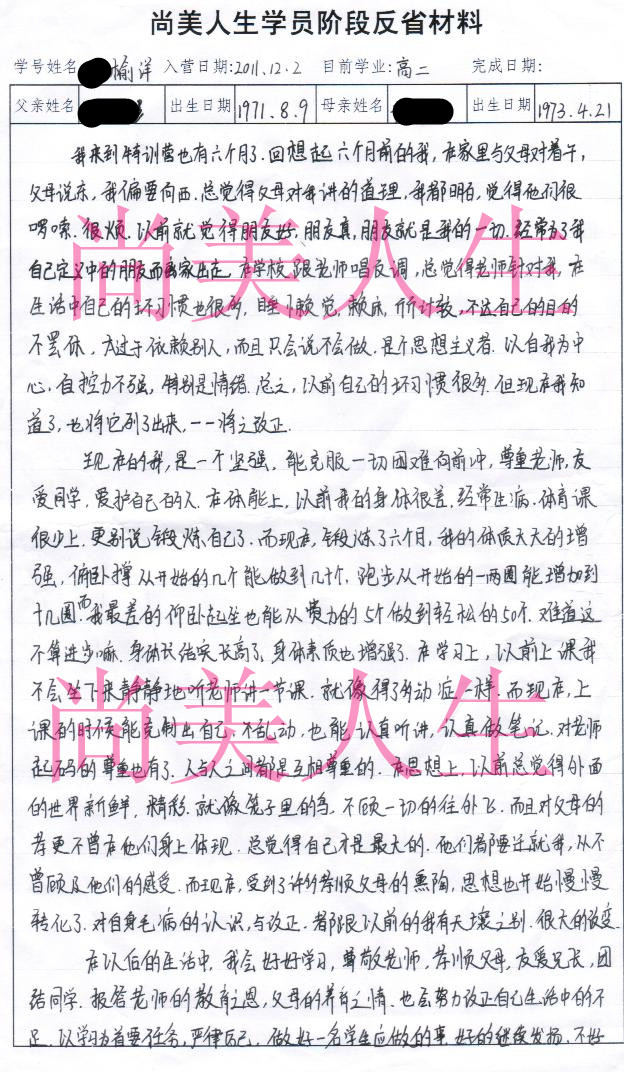 尚美人生学员阶段反省材料
学号姓名 榆洋 入营日期:2011.12.2 目前学业:高二 完成日期:
父亲姓名 出生日期 1971.8.9 母亲姓名 出生日期 1973.4.21
我来到特训营也有六个月了.回想起六个月前的我,在家里与父母对着干,
父母说东,我偏要向西.总觉得父母对我讲的道理,我都明白,觉得他们很
啰嗦.很烦.以前就觉得朋友好,朋友真,朋友就是我的一切.经常为了我
自己定义中的朋友而离家出走.在学校,跟老师唱反调,总觉得老师针对我,在
生活中自己的坏习惯也很多,睡懒觉,赖床,斤斤计较,不达自己的目的
不罢休,太过于依赖别人,而且只会说不会做.是个思想主义者.以自我为中
心,自控力不强,特别是情绪.总之,以前自己的坏习惯很多.但现在我知
道了,也将它列了出来,一一将之改正.
现在的我,是一个坚强,能克服一切困难向前冲,尊重老师,友
爱同学,爱护自己的人.在体能上,以前我的身体很差,经常生病.体育课
很少上.更别说锻炼自己了.而现在,锻炼了六个月,我的体质大大的增
强,俯卧撑从开始的几个能做到几十个,跑步从开始的一两圈能增加到
十几圈.而我最差的仰卧起坐也能从费力的5个做到轻松的50个.难道这
不算进步嘛.身体长结实长高了,身体素质也增强了.在学习上,以前上课我
不会坐下来静静地听老师讲一节课.就像得了多动症一样.而现在,上
课的时候能克制出自己,不乱动,也能认真听讲,认真做笔记.对老师
起码的尊重也有了.人与人之间都是互相尊重的.在思想上,以前总觉得外面
的世界新鲜,精彩.就像笼子里的鸟,不顾一切的往外飞.而且对父母的
孝更不曾在他们身上体现.总觉得自己才是最大的.他们都要迁就我,从不
曾顾及他们的感受.而现在,受到了许多孝顺父母的熏陶,思想也开始慢慢
转化了.对自身毛病的认识,与改正.都跟以前的我有天壤之别.很大的改变.
在以后的生活中,我会好好学习,尊敬老师,孝顺父母,友爱兄长,团
结同学.报答老师的教育之恩,父母的养育之情.也会努力改正自己生活中的不
足.以学习为首要任务,严律历己,做好一名学生应做的事.好的继续发扬.不好
尚美人生
尚美人生